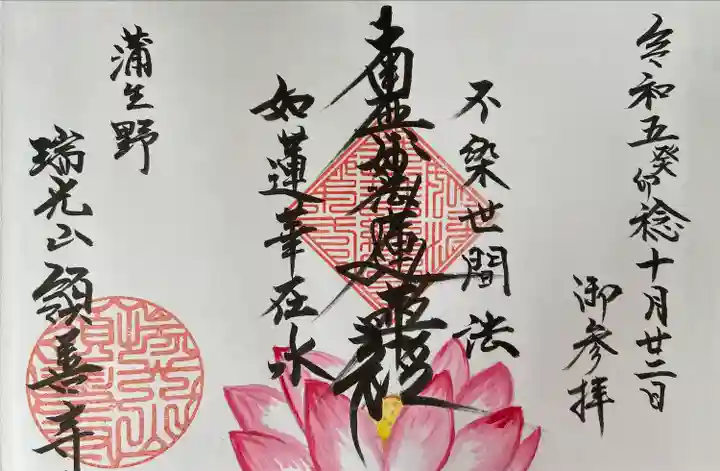 令和五癸卯稔十月廿二日
御参拝
不染世間法
南無妙法蓮華経
如蓮華在水
蒲生野
瑞光山 領善寺